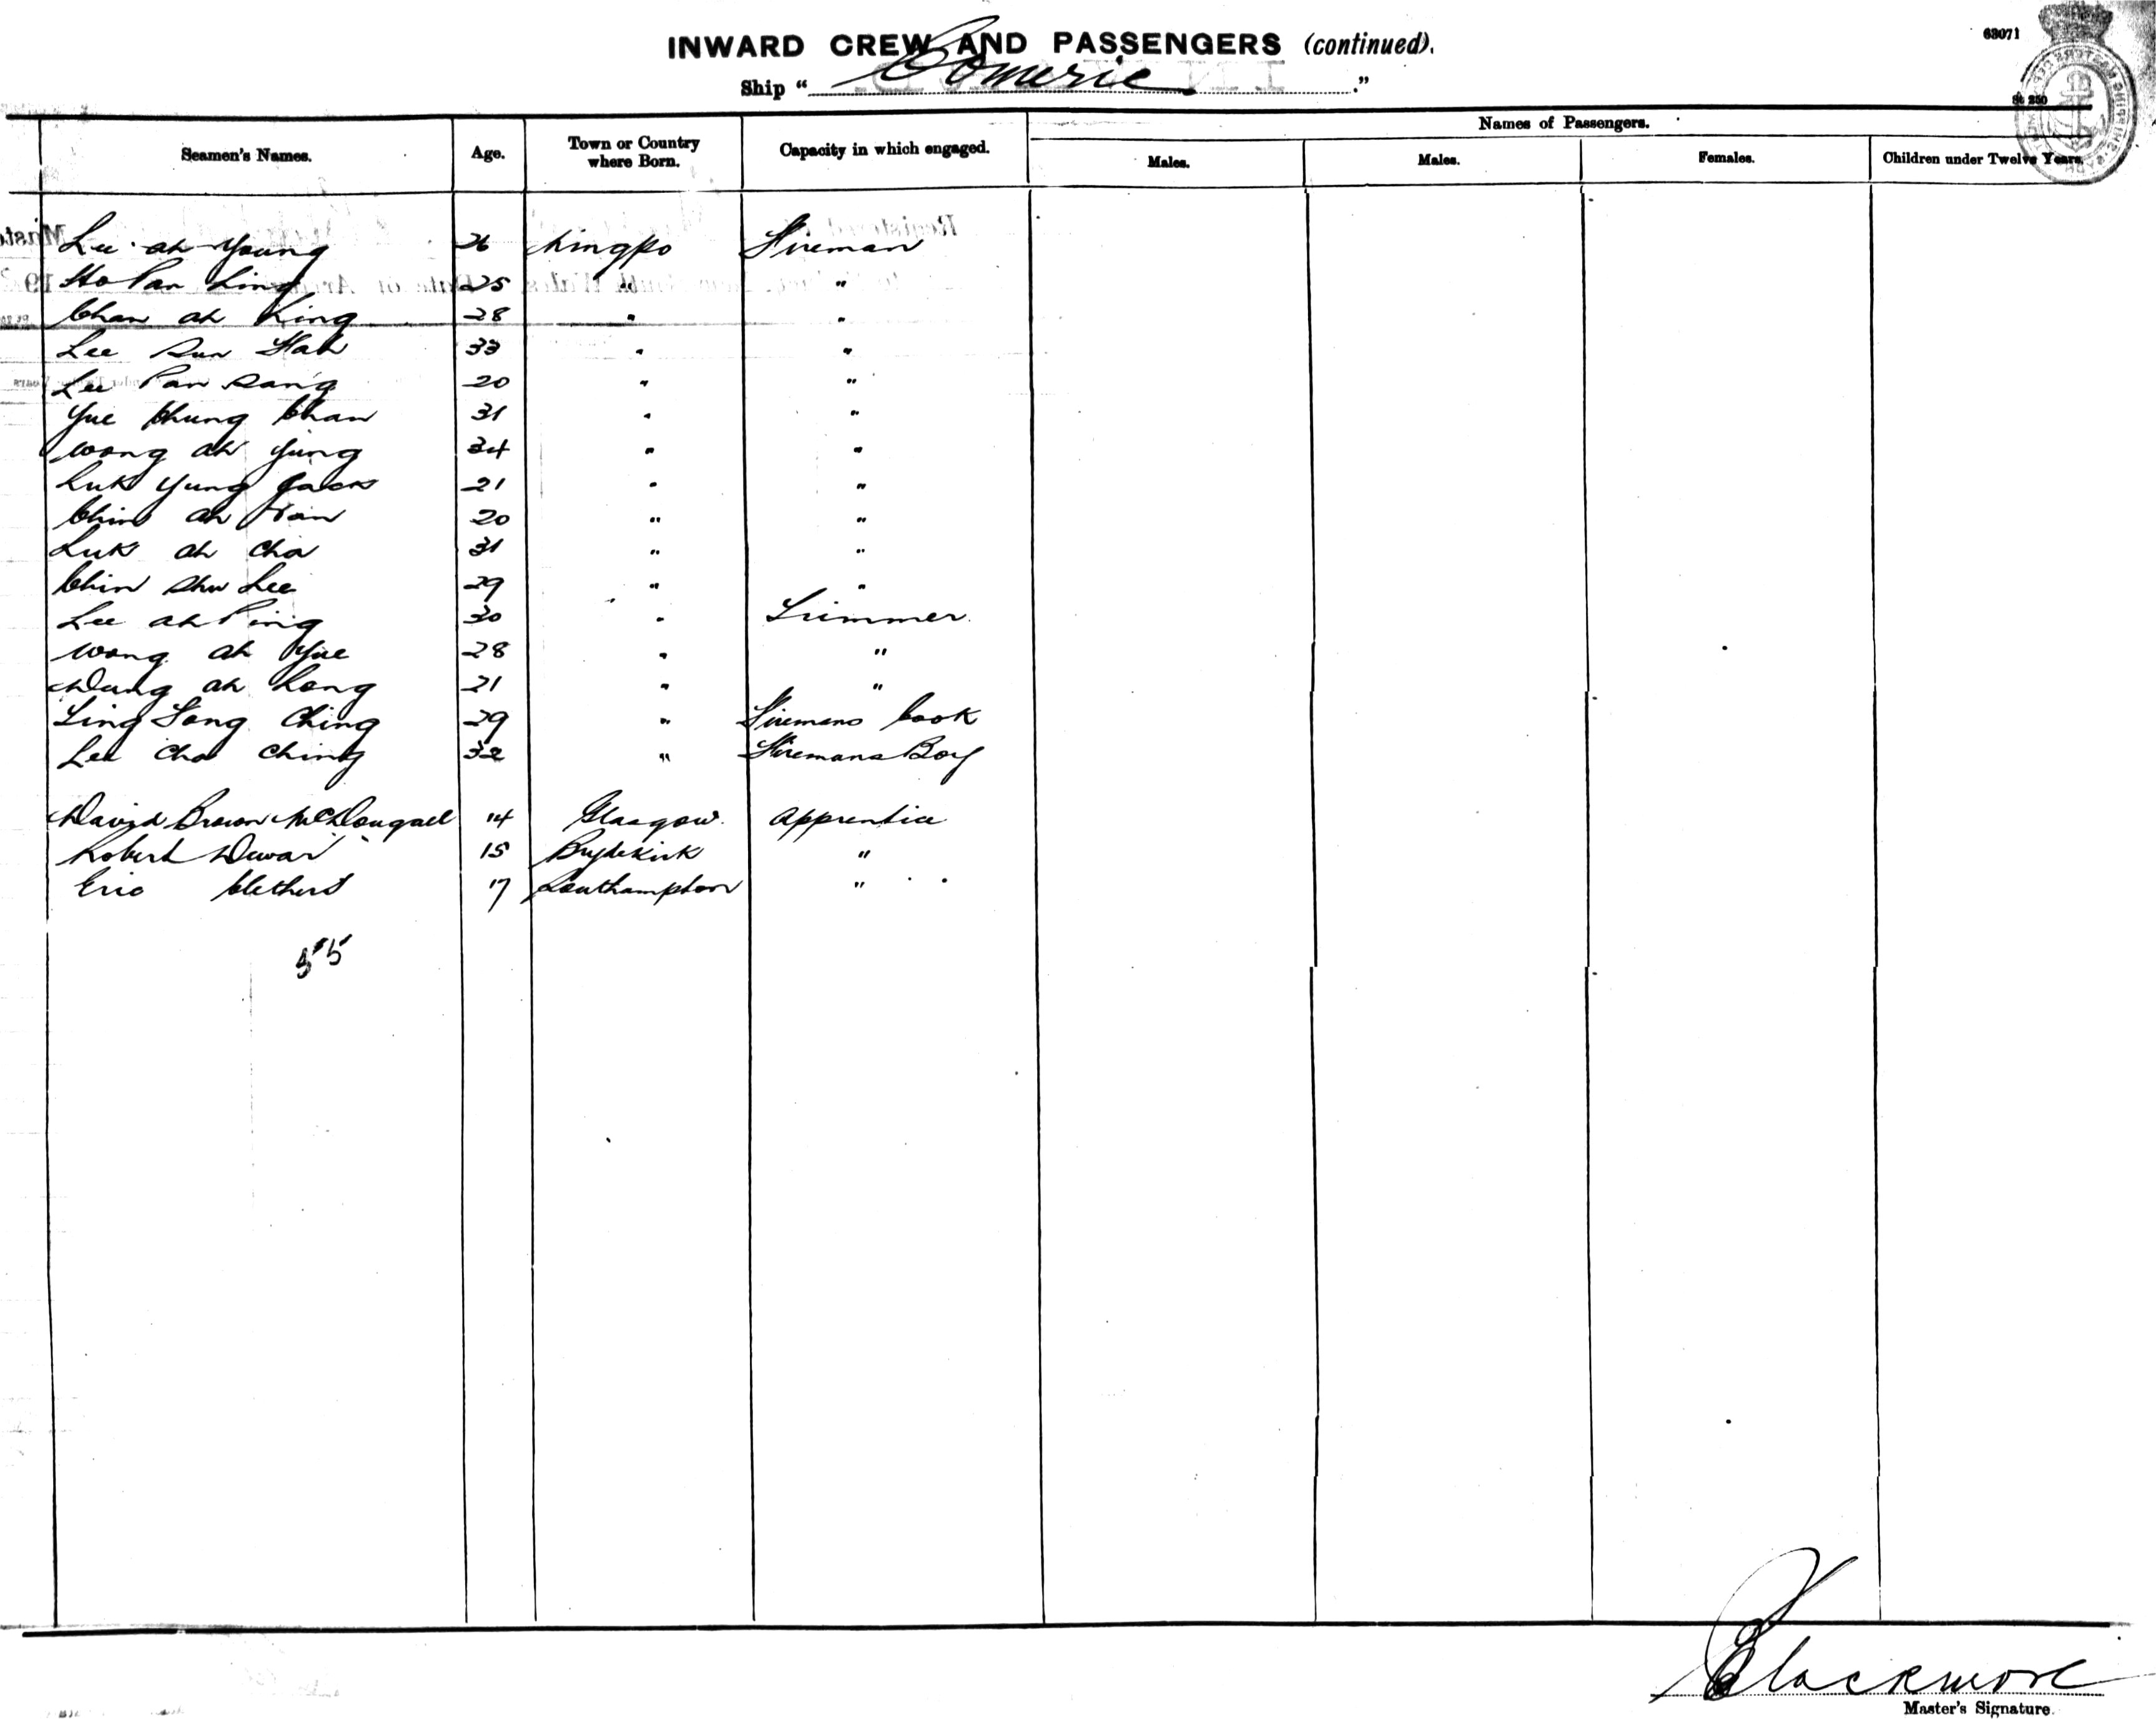 63071
INWARD CREW AND PASSENGERS (continued).
Ship " Comeric ."
St 250
Names of Passengers.
Seamen's Names. Age. Town or Country where Born. Capacity in which engaged. Males. Males. Females. Children under Twelve Years.
Lee ah Young 26 Ningpo Fireman
Ho Pan Ling 25 " "
Chan ah King 28 " "
Lee Sun Hah 33 " "
Lee Pan Sang 20 " "
Yue Chung Chan 31 " "
Wong ah Yung 34 " "
Luk Yung 21 " "
Chin ah 20 " "
Luk ah Cha 31 " "
Chin Shu Lee 29 " "
Lee ah Ping 30 " Trimmer
Wong ah Yue 28 " "
ah 21 " "
Ling Song Ching 29 " Firemans Cook
Lee Cha Ching 32 " Firemans Boy
David Brown McDougall 14 Glasgow Apprentice
Robert Dewar 15 Brydekirk "
Eric 17 Southampton "
55
Blackmore
Master's Signature.